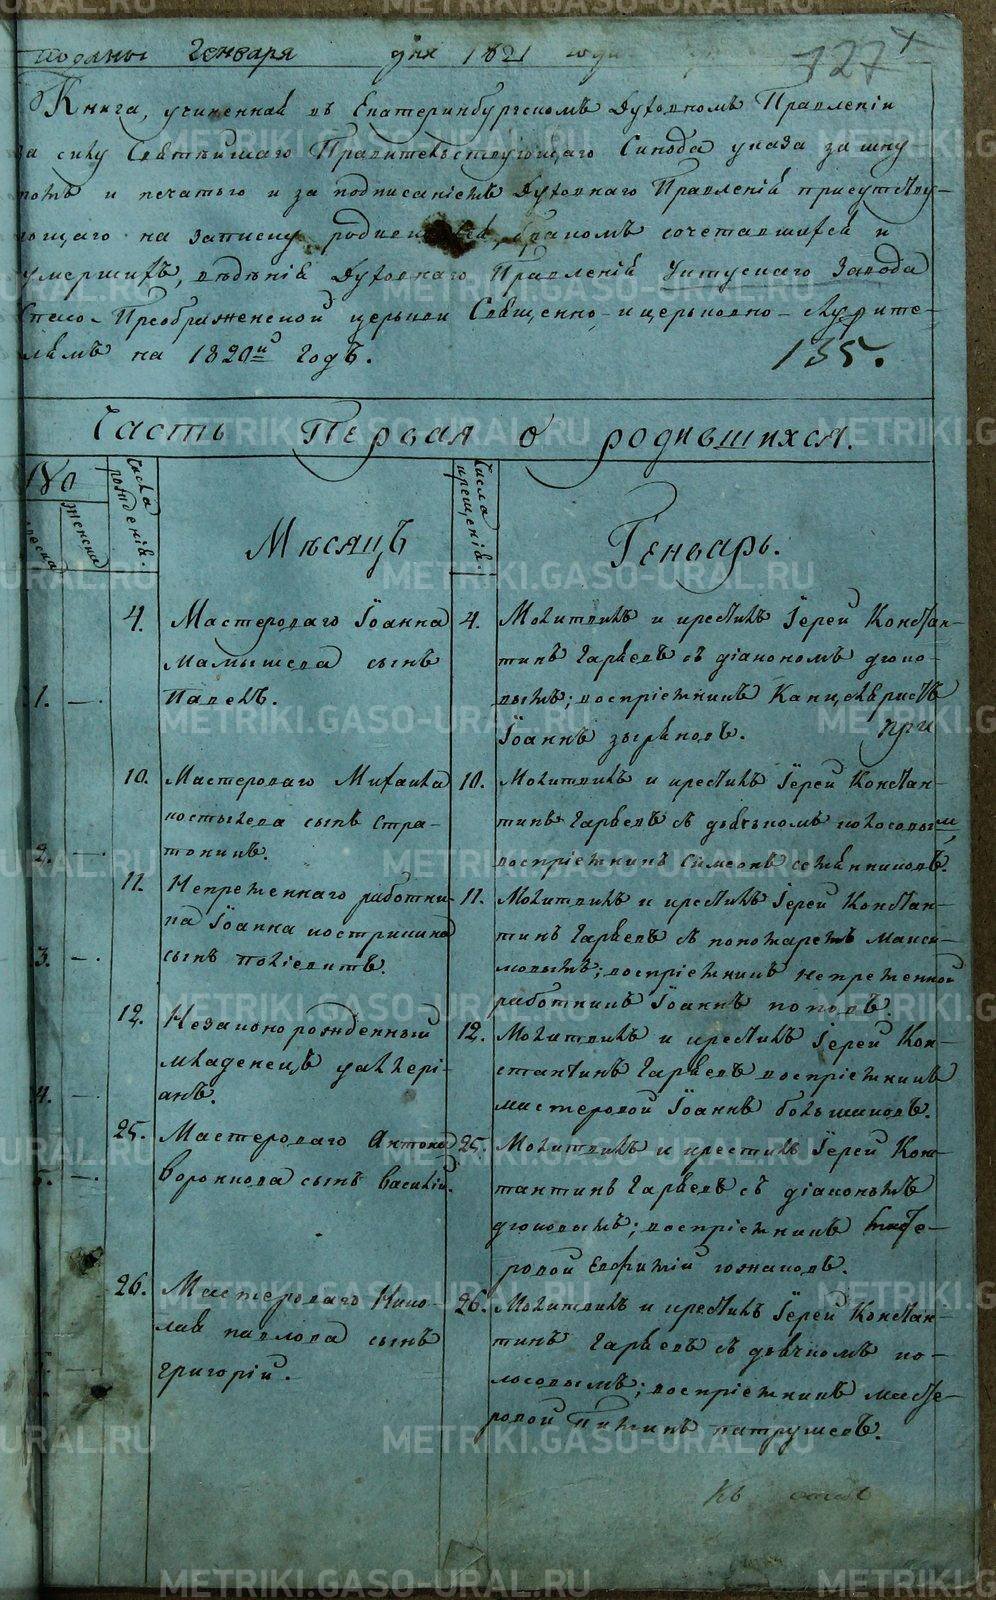 поданы Генваря дня 1821 года
127
Книга, учиненная въ Екатеринбургскомъ Духовномъ Правленіи
за силу Святѣйшаго Правительствующаго Синода указа за шну
ромъ и печатью и за подписаніемъ Духовнаго Правленія присутству-
ющаго на записку бракомъ сочетавшихся и
умершихъ, вѣдѣнія Духовнаго Правленія Уктускаго Завода
Спасо-Преображенской церькви Священно-и церьковно-служите-
лямъ на 1820й Годъ.
135.
Часть Первая о родившихся.
Числа рожденія.
Числа крещенія.
женска
Мѣсяцъ Генварь.
4. Мастероваго Іоанна
Мамышева сынъ
Павелъ.
4. Молитвилъ и крестилъ Іерей Констан-
тинъ Гаряевъ съ діакономъ
воспріемникъ Канцеляристъ
Іоаннъ Зыряновъ.
при
1. —.
10. Мастероваго Михаила
Костылева сынъ Стра-
тоникъ.
10. Молитвилъ и крестилъ Іерей Констан-
тинъ Гаряевъ съ дьячкомъ Колосовым,
воспріемникъ Симеонъ
2. —.
11. Непременнаго работни-
ка Іоанна Кострикина
сынъ Поліевктъ.
11. Молитвилъ и крестилъ Іерей Констан-
тинъ Гаряевъ съ пономаремъ Макси-
мовымъ; воспріемникъ непременной
работникъ Іоаннъ Поповъ.
3. —.
12. Незаконорожденный
младенецъ Уаллері-
анъ.
12. Молитвилъ и крестилъ Іерей Кон-
стантинъ Гаряевъ воспріемникъ
мастеровой Іоаннъ Большаковъ.
4. —.
25. Мастероваго Антона
Воронкова сынъ Василій.
25. Молитвилъ и крестилъ Іерей Кон-
тантинъ Гаряевъ съ діакономъ
воспріемникъ мастe-
ровой Евфимій
5. —.
26. Мастероваго Нико-
лая Павлова сынъ
Григорій.
26. Молитвилъ и крестилъ Іерей Констан-
тинъ Гаряевъ съ дьячкомъ Ко-
лосовымъ; воспріемникъ масте-
ровой Пименъ Патрушевъ.
METRIKI.GASO-URAL.RU